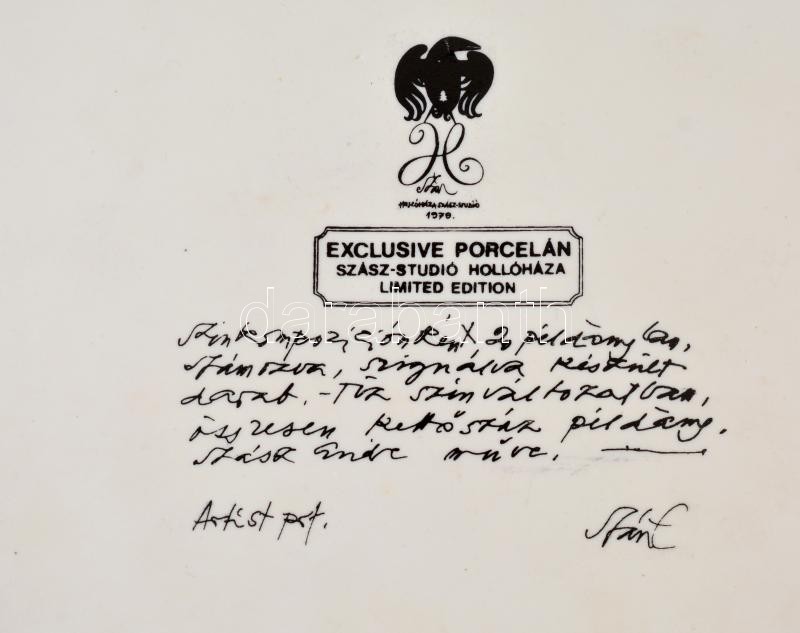 H
Szász
HOLLÓHÁZA SZÁSZ-STUDIÓ
1978.
EXCLUSIVE PORCELÁN
SZÁSZ-STUDIÓ HOLLÓHÁZA
LIMITED EDITION
darabanth
Színkompoziciónként 20 példányban,
számozva, szignálva készült
darab. - Tíz színváltozatban,
összesen kettőszáz példány.
Szász Endre műve.
Artist prf.
Szász E